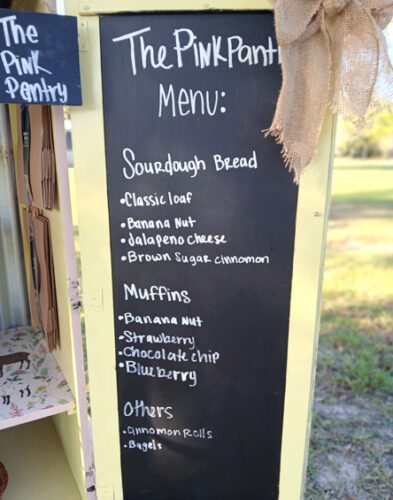 The
Pink
Pantry
The Pink Pant
Menu:
Sourdough Bread
•Classic loaf
•Banana Nut
•Jalapeno cheese
•Brown Sugar cinnamon
Muffins
•Banana Nut
•Strawberry
•Chocolate chip
•Blueberry
Others
•Cinnomon Rolls
•Bagels